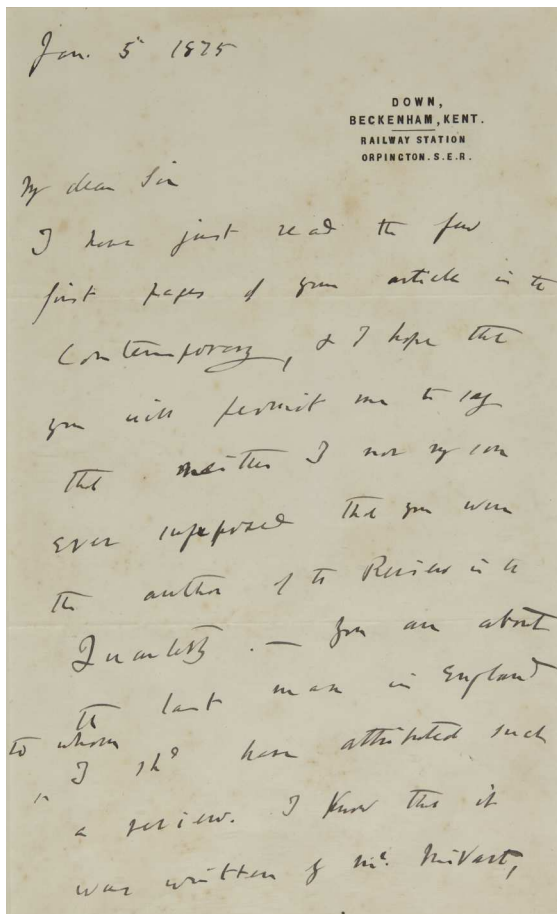 Jan. 5th 1875
DOWN,
BECKENHAM, KENT.
RAILWAY STATION
ORPINGTON. S.E.R.
My dear Sir
I have just read the few
first pages of your article in the
Contemporary, & I hope that
you will permit me to say
that neither I nor my son
ever supposed that you were
the author of the Review in the
Quarterly. — You are about
the last man in England
to whom I shd have attributed such
a review. I know that it
was written by Mr. Mivart,